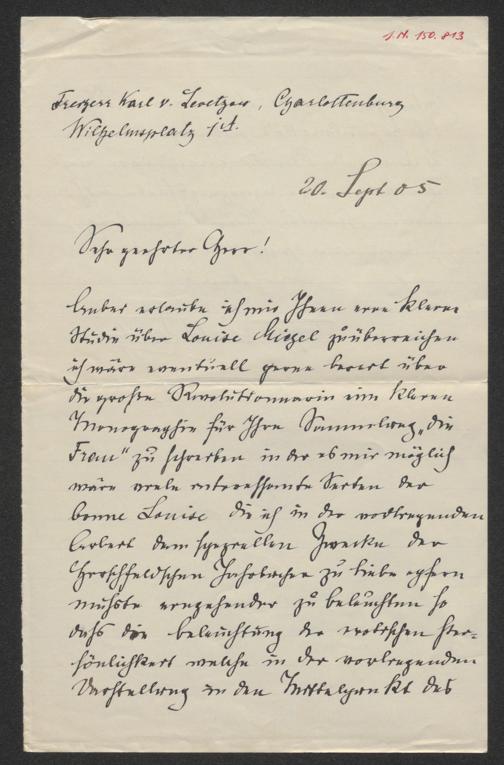 J.N. 150.813
Freiherr Karl v. Levetzow, Charlottenburg
Wilhelmsplatz 1a.
20. Sept 05
Sehr geehrter Herr!
Anbei erlaube ich mir Ihnen eine kleine
Studie über Louise Michel zu überreichen
ich wäre eventuell gerne bereit über
die große Revolutionnärin eine kleine
Monographie für Ihre Sammelung „die
Frau“ zu schreiben in der es mir möglich
wäre viele interessante Seiten der
bonne Louise die ich in der vorliegenden
Arbeit dem speziellen Zwecke der
Hirschfeldschen Jahrbücher zu liebe opfern
mußte eingehender zu beleuchten so
daß die beleuchtung der erotischen Per-
sönlichkeit welche in der vorliegenden
Darstellung in den Mittelpunkt des